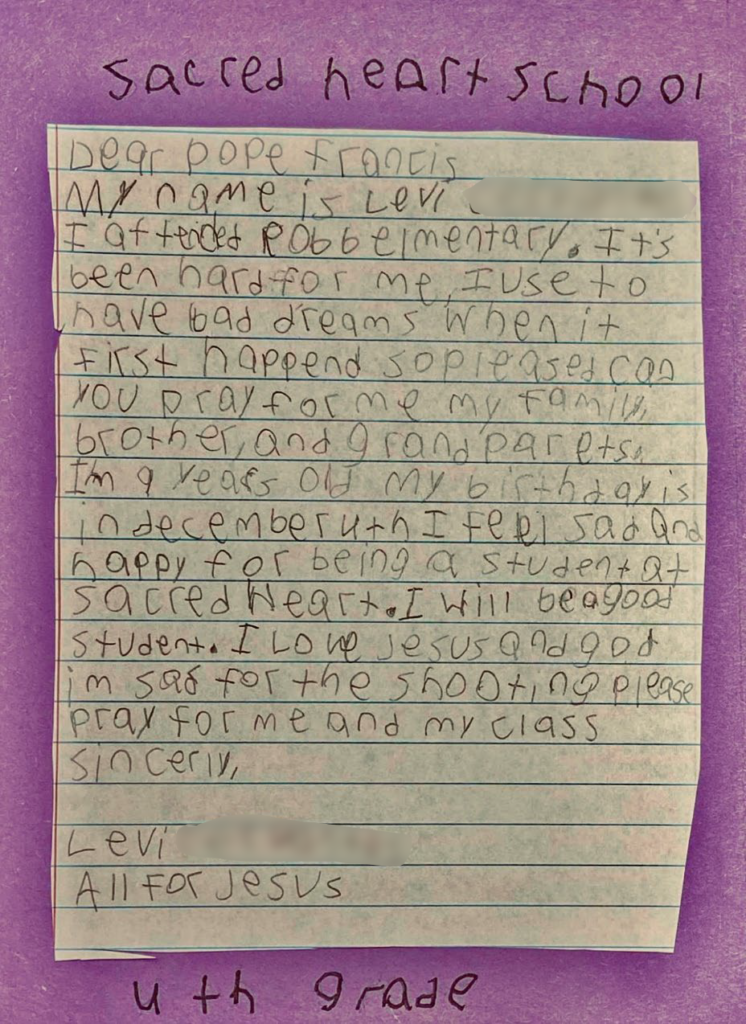 sacred heart school
Dear pope francis
My name is Levi
I attended Robb elmentary. It's
been hard for me, I use to
have bad dreams when it
first happend so pleased can
you pray for me my family,
brother, and grandparets.
Im 9 years old my birthday is
in december 4th I feel sad and
happy for being a student at
sacred Heart. I will be a good
student. I Love jesus and god
im sad for the shooting please
pray for me and my class
sincerly,
Levi
All for Jesus
4th grade